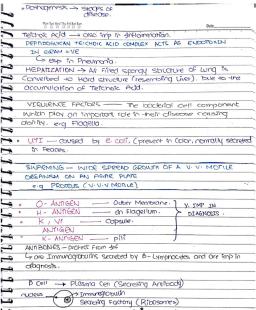 • Pathogenesis → Steps of
disease.
Date
Teichoic Acid → also imp in inflammation.
PEPTIDOGLYCAN TEICHOIC ACID COMPLEX ACTS AS ENDOTOXIN
IN GRAM +VE
↳ imp in Pneumonia.
HEPATIZATION → Air filled spongy structure of lung is
converted to Hard structure (resembling Liver), due to the
accumulation of Teichoic Acid.
VIRULENCE FACTORS → The bacterial cell component
which play an important role in their disease causing
ability. e.g Flagella.
• UTI → caused by E. coli. (present in Colon, normally secreted
in faeces)
SWARMING → WIDE SPREAD GROWTH OF A V. V. MOTILE
ORGANISM ON AN AGAR PLATE
e.g PROTEUS (V.V.V MOTILE)
• O - ANTIGEN → Outer Membrane.
• H - ANTIGEN → on Flagellum.
• K, VI → Capsule.
ANTIGEN
• K - ANTIGEN → pili
V. IMP IN
DIAGNOSIS.
ANTIBODIES →
↳ are Immunoglobulins secreted by B- Lymphocytes and are imp in
diagnosis.
B Cell → Plasma Cell (Secreting Antibody)
nucleus
→ Immunoglobulin
Secreting Factory (Ribosomes)